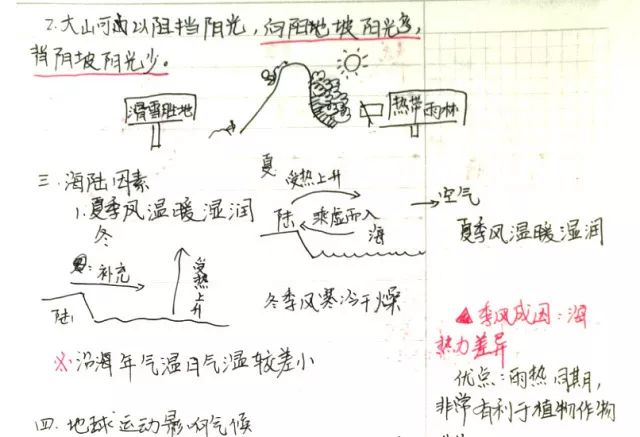 2.大山可以阻挡阳光，向阳地坡阳光多，
背阴坡阳光少。
滑雪胜地
热带雨林
三.海陆因素
1.夏季风温暖湿润
夏
受热上升
陆
乘虚而入
海
空气
夏季风温暖湿润
冬
补充
受热上升
陆
冬季风寒冷干燥
※沿海年气温日气温较差小
▲季风成因：海
热力差异
优点：雨热同期，
非常有利于植物作物
四.地球运动影响气候